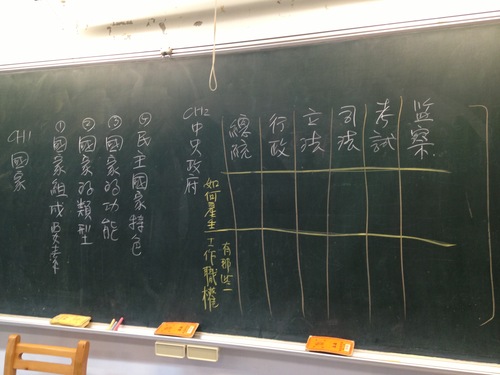 CH1 國家
①國家組成要素
②國家的類型
③國家的功能
④民主國家特色
CH2 中央政府
如何產生
工作職權
有那些
總統
行政
立法
司法
考試
監察